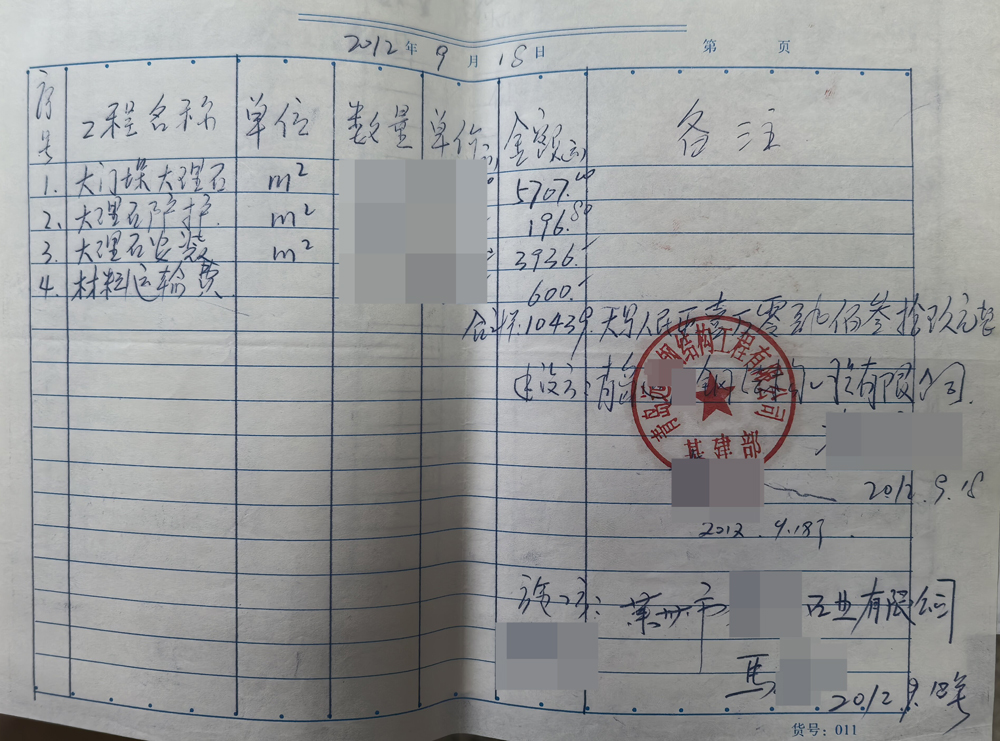 2012年9月18日 第 页
序号 工程名称 单位 数量 单价(元) 金额(元) 备注
1. 大门垛大理石 m² 5707.00
2. 大理石防护 m² 196.80
3. 大理石安装 m² 3936.-
4. 材料运输费 600.-
合计: 10439.- 大写人民币壹万零肆佰叁拾玖元整
建设方: 青岛 钢结构工程有限公司
青岛 钢结构工程有限公司
基建部
2012.9.18
2012.9.18日
施工方: 莱州市 石业有限公司
馬
2012.9.18号
货号: 011